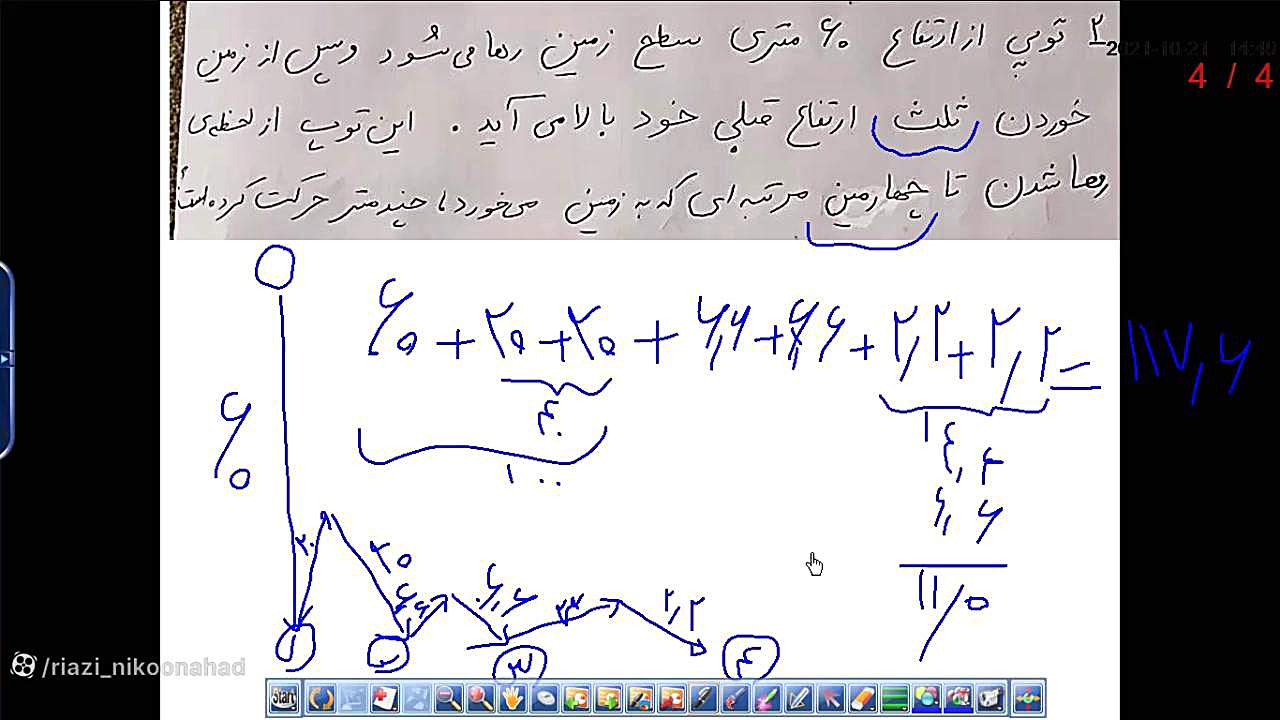 ۲ توپی از ارتفاع ۶۰ متری سطح زمین رها می‌شود و پس از زمین
خوردن ثلث ارتفاع قبلی خود بالا می‌آید. این توپ از لحظه‌ی
رها شدن تا چهارمین مرتبه‌ای که به زمین می‌خورد، چند متر حرکت کرده است؟
2021-10-21 14:49
4 / 4
۶۰ + ۲۰ + ۲۰ + ۶,۶ + ۶,۶ + ۲,۲ + ۲,۲ = ۱۱۷,۶
۴۰
۱۰۰
۱
۴,۴
۶,۶
۱۱/۰
۶۰
۲۰
۲۰
۶,۶
۶,۶
۲,۲
۲,۲
۱
۲
۳
۴
/riazi_nikoonahad
Start